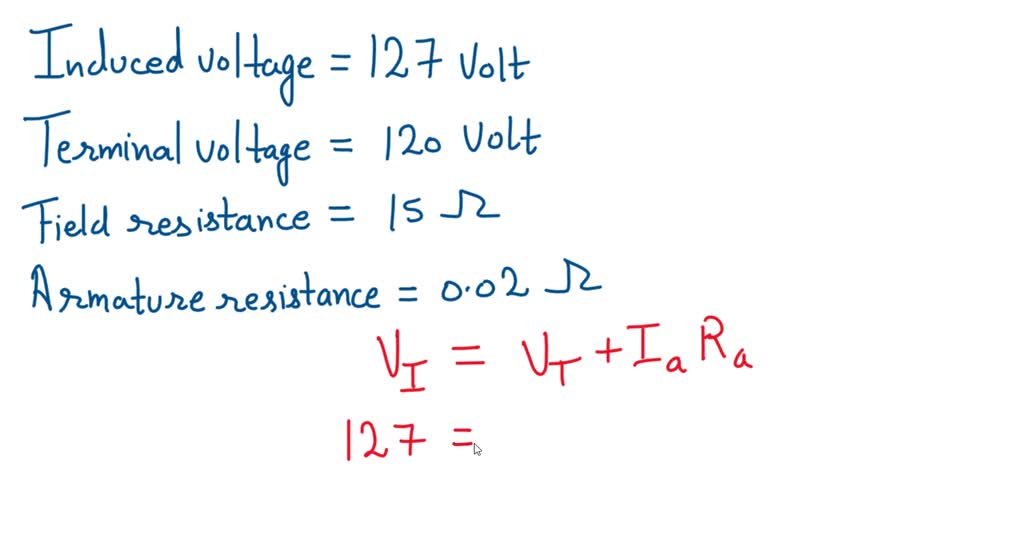 Induced voltage = 127 Volt
Terminal voltage = 120 Volt
Field resistance = 15 Ω
Armature resistance = 0.02 Ω
V_I = V_T + I_a R_a
127 =